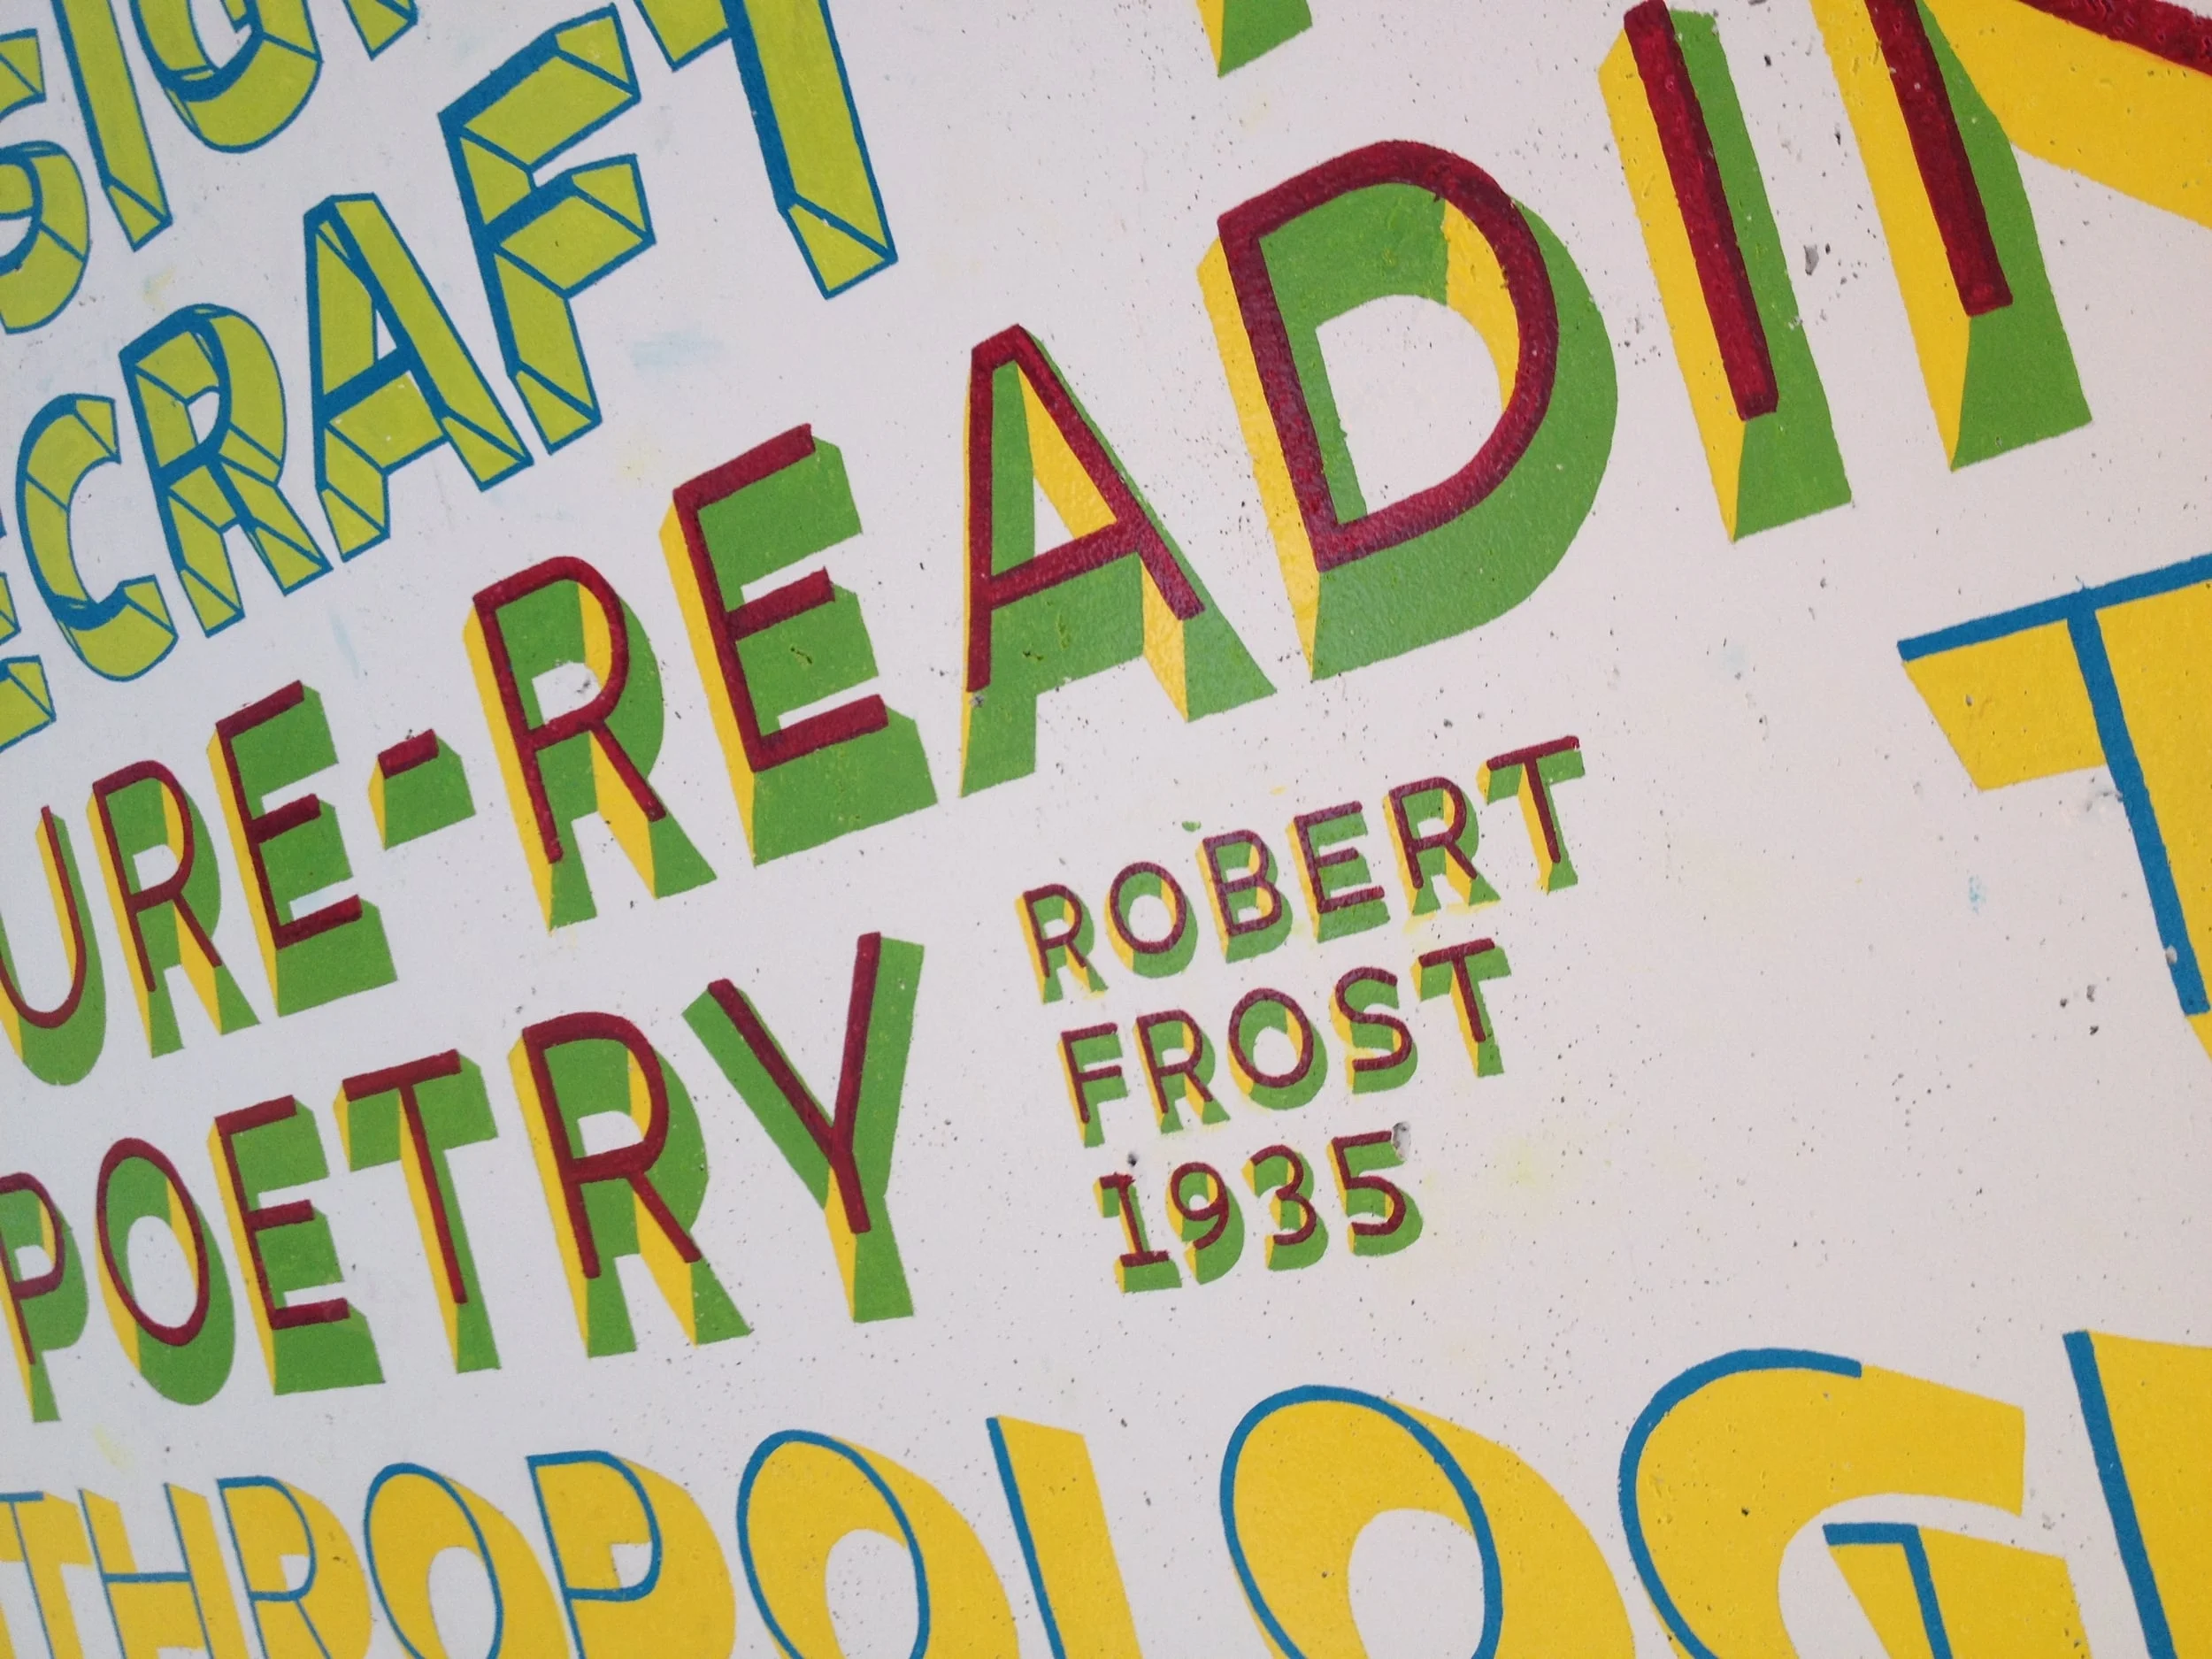 ECRAFT
URE-READIN
POETRY
ROBERT
FROST
1935
T
THROPOLOGI